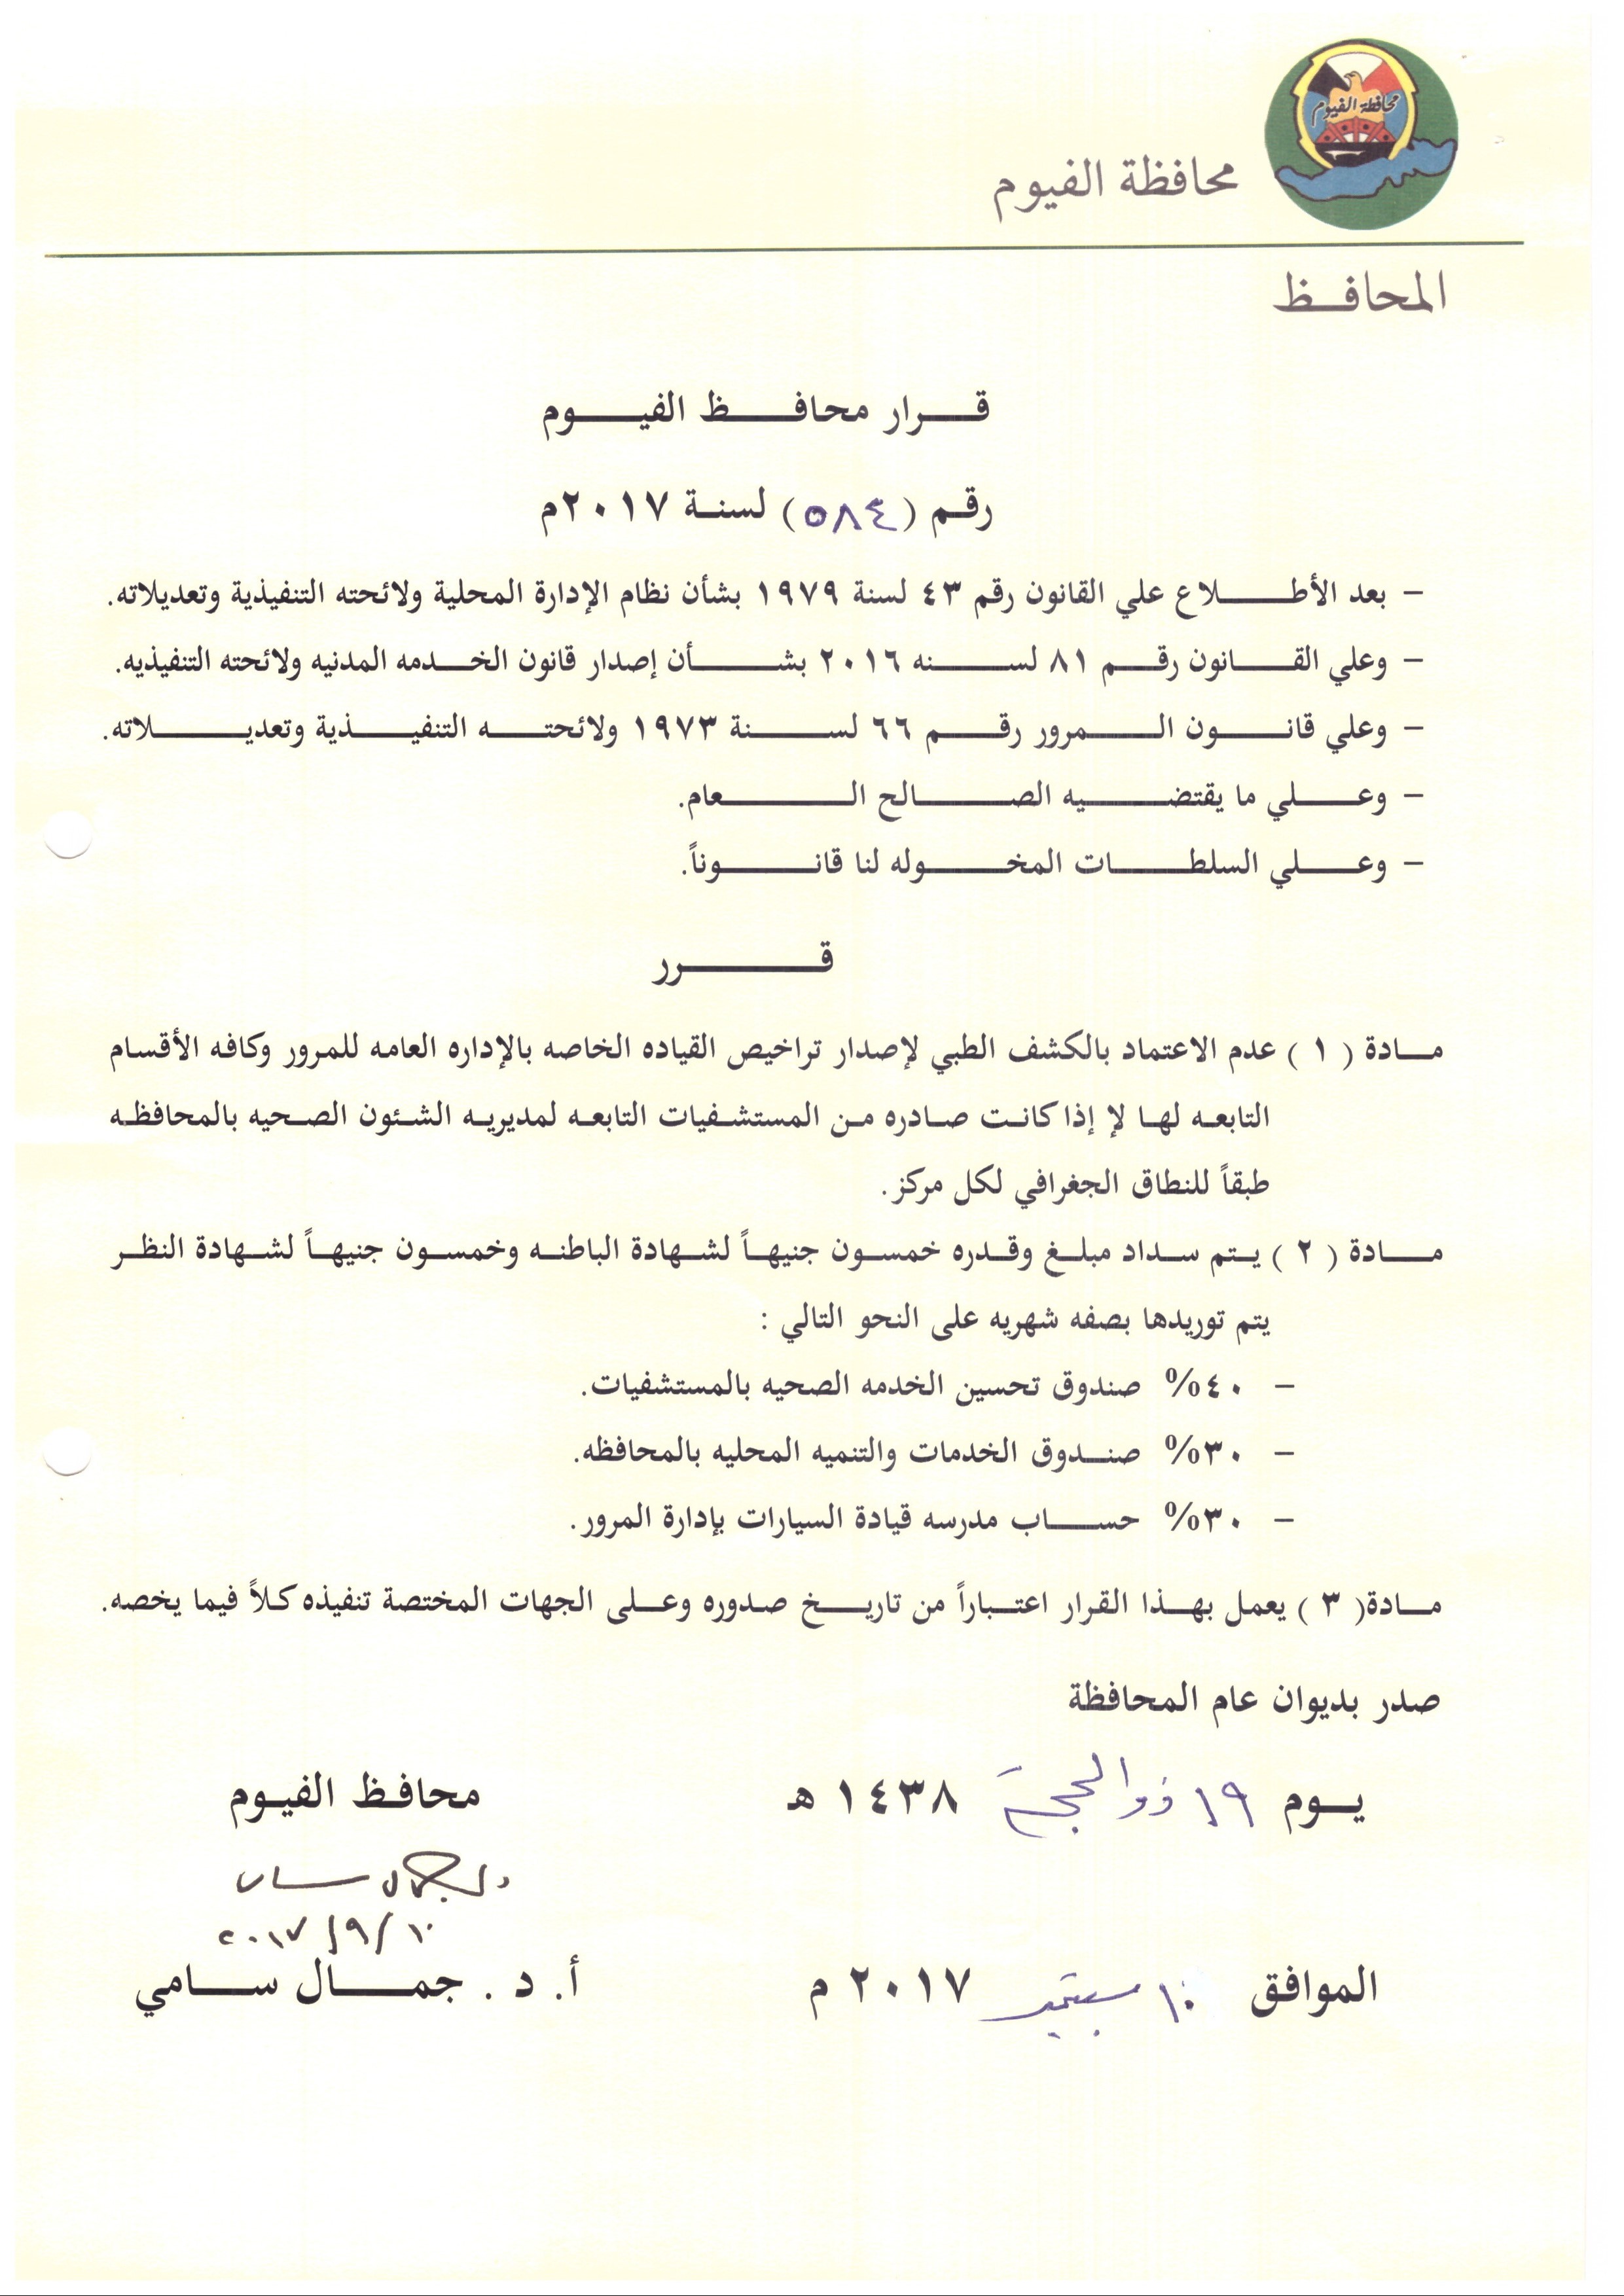 محافظة الفيوم
محافظة الفيوم
المحافظ
قرار محافظ الفيوم
رقم (٥٨٤) لسنة ٢٠١٧م
- بعد الأطلاع علي القانون رقم ٤٣ لسنة ١٩٧٩ بشأن نظام الإدارة المحلية ولائحته التنفيذية وتعديلاته.
- وعلي القانون رقم ٨١ لسنه ٢٠١٦ بشأن إصدار قانون الخدمه المدنيه ولائحته التنفيذيه.
- وعلي قانون المرور رقم ٦٦ لسنة ١٩٧٣ ولائحته التنفيذية وتعديلاته.
- وعلي ما يقتضيه الصالح العام.
- وعلي السلطات المخوله لنا قانوناً.
قرر
مادة ( ١ ) عدم الاعتماد بالكشف الطبي لإصدار تراخيص القياده الخاصه بالإداره العامه للمرور وكافه الأقسام
التابعه لها لإ إذا كانت صادره من المستشفيات التابعه لمديريه الشئون الصحيه بالمحافظه
طبقاً للنطاق الجغرافي لكل مركز.
مادة ( ٢ ) يتم سداد مبلغ وقدره خمسون جنيهاً لشهادة الباطنه وخمسون جنيهاً لشهادة النظر
يتم توريدها بصفه شهريه على النحو التالي :
- ٤٠% صندوق تحسين الخدمه الصحيه بالمستشفيات.
- ٣٠% صندوق الخدمات والتنميه المحليه بالمحافظه.
- ٣٠% حساب مدرسه قيادة السيارات بإدارة المرور.
مادة( ٣ ) يعمل بهذا القرار اعتباراً من تاريخ صدوره وعلى الجهات المختصة تنفيذه كلاً فيما يخصه.
صدر بديوان عام المحافظة
يوم ١٩ ذو الحجة ١٤٣٨ هـ
محافظ الفيوم
٢٠١٧/٩/١٠
الموافق ١٠ سبتمبر ٢٠١٧ م
أ. د . جمال سامي